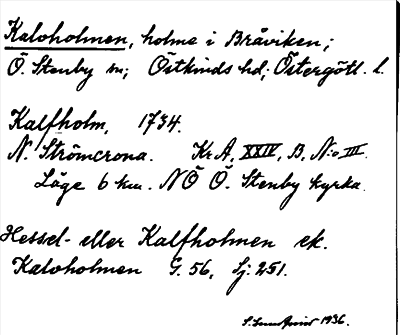 Kaloholmen, holme i Bråviken;
Ö. Stenby sn; Östkinds hd; Östergötl. l.
Kalfholm, 1734.
N. Strömcrona. Kr. A, XXIV, B, N:o III.
Läge 6 km. NÖ Ö. Stenby kyrka.
Hessel- eller Kalfholmen ek.
Kaloholmen G. 56, Sj: 251.
1936.